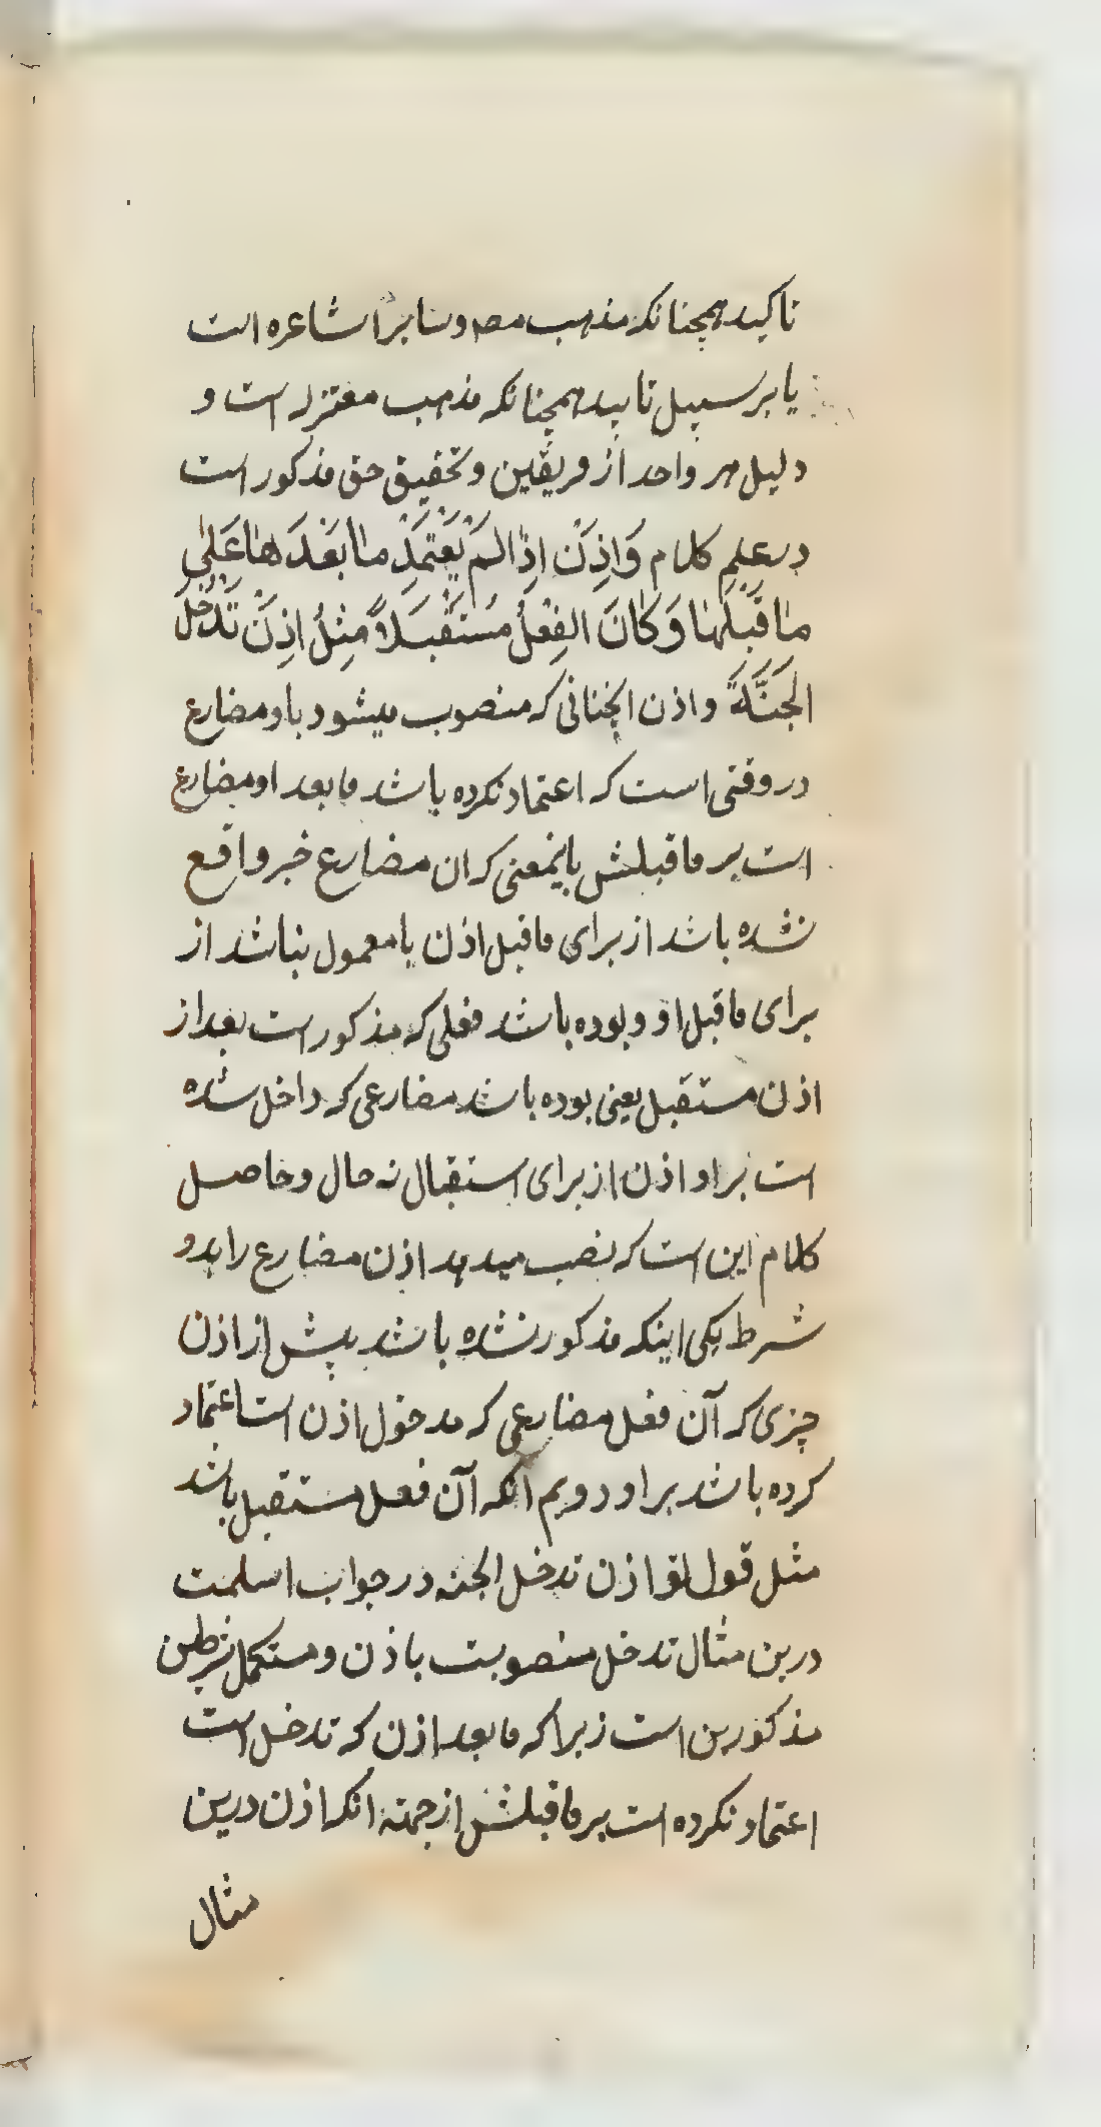 تاکید همچنانکه مذهب مصه و سایر اشاعره است
یا بر سبیل تایید همچنانکه مذهب معتزله است و
دلیل هر واحد از فریقین و تحقیق حق مذکور است
در علم کلام وَاِذَنْ اِذٰا لَمْ یَعْتَمِدْ مٰا بَعْدَهٰا عَلٰی
مٰا قَبْلَهٰا وَ کٰانَ الفِعْلُ مُسْتَقْبَلاً مِثْلُ اِذَنْ تَدْخُلَ
الْجَنَّةَ و اذن انچنانی که منصوب میشود باو مضارع
در وقتی است که اعتماد نکرده باشد ما بعد او مضارع
است بر ما قبلش باینمعنی که ان مضارع خبر واقع
نشده باشد از برای ما قبل اذن یا معمول نباشد از
برای ما قبل او و بوده باشد فعلی که مذکور است بعد از
اذن مستقبل یعنی بوده باشد مضارعی که داخل شده
است بر او اذن از برای استقبال نه حال و حاصل
کلام این است که نصب میدهد اذن مضارع را بدو
شرط یکی اینکه مذکور نشده باشد پیش از اذن
چیزی که آن فعل مضارعی که مدخول اذن است اعتماد
کرده باشد بر او دویم انکه آن فعل مستقبل باشد
مثل قول تو اذن تدخل الجنه در جواب اسلمت
درین مثال تدخل منصوبت باذن و مستکمل شرطین
مذکورین است زیرا که ما بعد اذن که تدخل است
اعتماد نکرده است بر ما قبلش از جهته انکه اذن درین
مثال